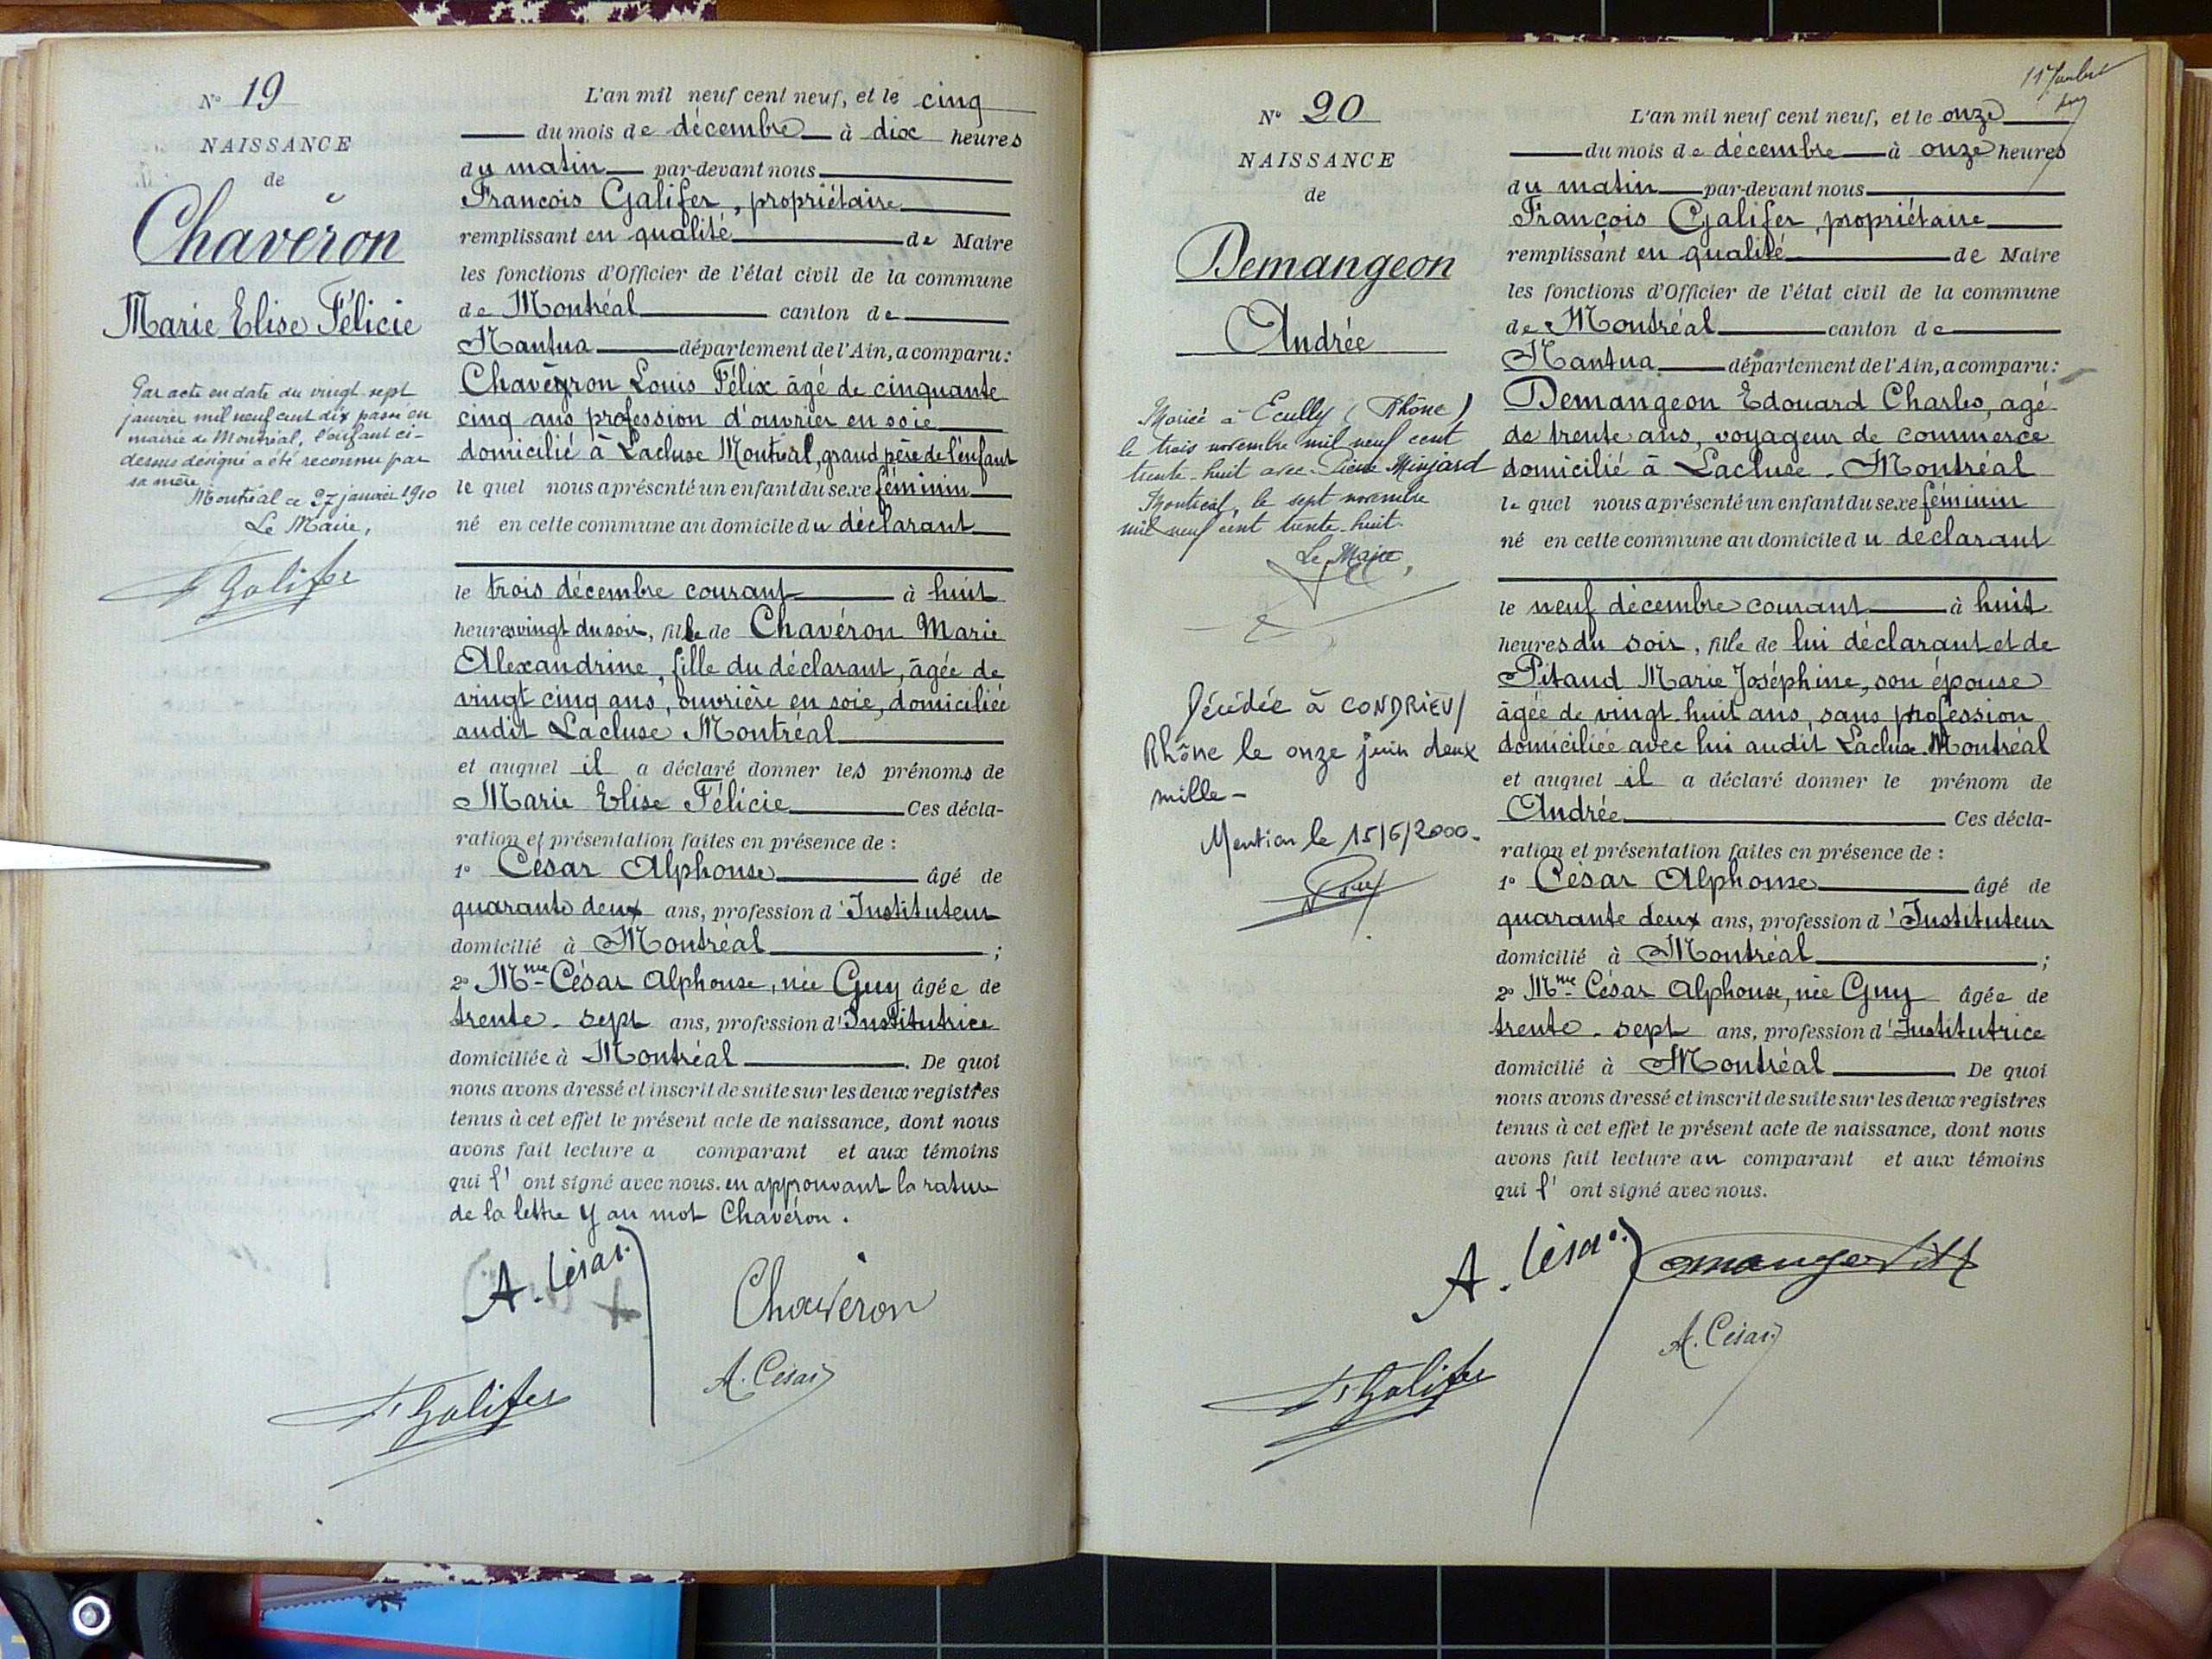 N° 19
NAISSANCE
de
Chavéron
Marie Elise Félicie
Par acte en date du vingt sept
janvier mil neuf cent dix passé en
mairie de Montréal, l'enfant ci-
dessus désigné a été reconnu par
sa mère.
Montréal ce 27 janvier 1910
Le Maire,
F Galifer
L'an mil neuf cent neuf, et le cinq
du mois de décembre à dix heures
du matin par-devant nous
François Galifer, propriétaire
remplissant en qualité de Maire
les fonctions d'Officier de l'état civil de la commune
de Montréal canton de
Nantua département de l'Ain, a comparu:
Chavéyron Louis Félix âgé de cinquante
cinq ans profession d'ouvrier en soie
domicilié à Lacluse Montréal, grand père de l'enfant
le quel nous a présenté un enfant du sexe féminin
né en cette commune au domicile du déclarant
le trois décembre courant à huit
heures vingt du soir, fille de Chavéron Marie
Alexandrine, fille du déclarant, âgée de
vingt cinq ans, ouvrière en soie, domiciliée
audit Lacluse Montréal
et auquel il a déclaré donner les prénoms de
Marie Elise Félicie Ces décla-
ration et présentation faites en présence de :
1° César Alphonse âgé de
quarante deux ans, profession d'Instituteur
domicilié à Montréal ;
2° Mme César Alphonse, née Guy âgée de
trente-sept ans, profession d'Institutrice
domiciliée à Montréal. De quoi
nous avons dressé et inscrit de suite sur les deux registres
tenus à cet effet le présent acte de naissance, dont nous
avons fait lecture a comparant et aux témoins
qui l' ont signé avec nous. en approuvant la rature
de la lettre y au mot Chavéron.
A. César
Chavéron
A. César
F Galifer
11 7
N° 20
NAISSANCE
de
Demangeon
Andrée
Mariée à Ecully (Rhône)
le trois novembre mil neuf cent
trente-huit avec Pierre Minjard
Montréal, le sept novembre
mil neuf cent trente-huit.
Le Maire,
Décédée à CONDRIEU/
Rhône le onze juin deux
mille -
Mention le 15/6/2000.
L'an mil neuf cent neuf, et le onze
du mois de décembre à onze heures
du matin par-devant nous
François Galifer, propriétaire
remplissant en qualité de Maire
les fonctions d'Officier de l'état civil de la commune
de Montréal canton de
Nantua département de l'Ain, a comparu:
Demangeon Edouard Charles, agé
de trente ans, voyageur de commerce
domicilié à Lacluse-Montréal
le quel nous a présenté un enfant du sexe féminin
né en cette commune au domicile du déclarant
le neuf décembre courant à huit
heures du soir, fille de lui déclarant et de
Pitaud Marie Joséphine, son épouse
âgée de vingt-huit ans, sans profession
domiciliée avec lui audit Lacluse-Montréal
et auquel il a déclaré donner le prénom de
Andrée Ces décla-
ration et présentation faites en présence de :
1° César Alphonse âgé de
quarante deux ans, profession d'Instituteur
domicilié à Montréal ;
2° Mme César Alphonse, née Guy âgée de
trente-sept ans, profession d'Institutrice
domicilié à Montréal De quoi
nous avons dressé et inscrit de suite sur les deux registres
tenus à cet effet le présent acte de naissance, dont nous
avons fait lecture au comparant et aux témoins
qui l' ont signé avec nous.
A. César
A. César
F Galifer